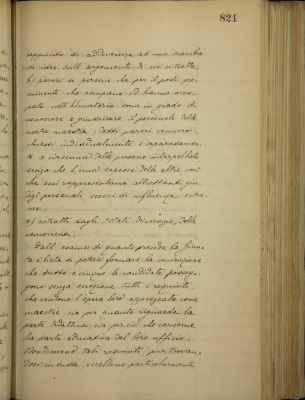 821
appunto di addivenire ad uno scambio
di idee sull'argomento di cui si tratta,
b) pareri di persone che per il posto pre-
minente che occupano od hanno occu-
pato nell'Educatorio sono in grado di
conoscere e giudicare il personale delle
nostre maestre; detti pareri vennero
chiesti individualmente e separatamen-
te a ciascuna delle persone interpellate
senza che l'una sapesse delle altre così
che essi rappresentano altrettanti giu-
dizi personali, scevri di influenza estra-
nea;
c) estratti dagli stati di servizio delle
concorrenti.
Dall'esame di quanto precede la Giun-
ta è lieta di potersi formare la convinzione
che tutte e cinque le candidate posseg-
gono senza eccezione tutti i requisiti
che rendono l'opera loro apprezzata come
maestre sia per quanto riguarda la
parte didattica sia per ciò che concerne
la parte educativa del loro ufficio.
Nondimeno tali requisiti, pur trovan-
dosi in tutte eccellono particolarmente